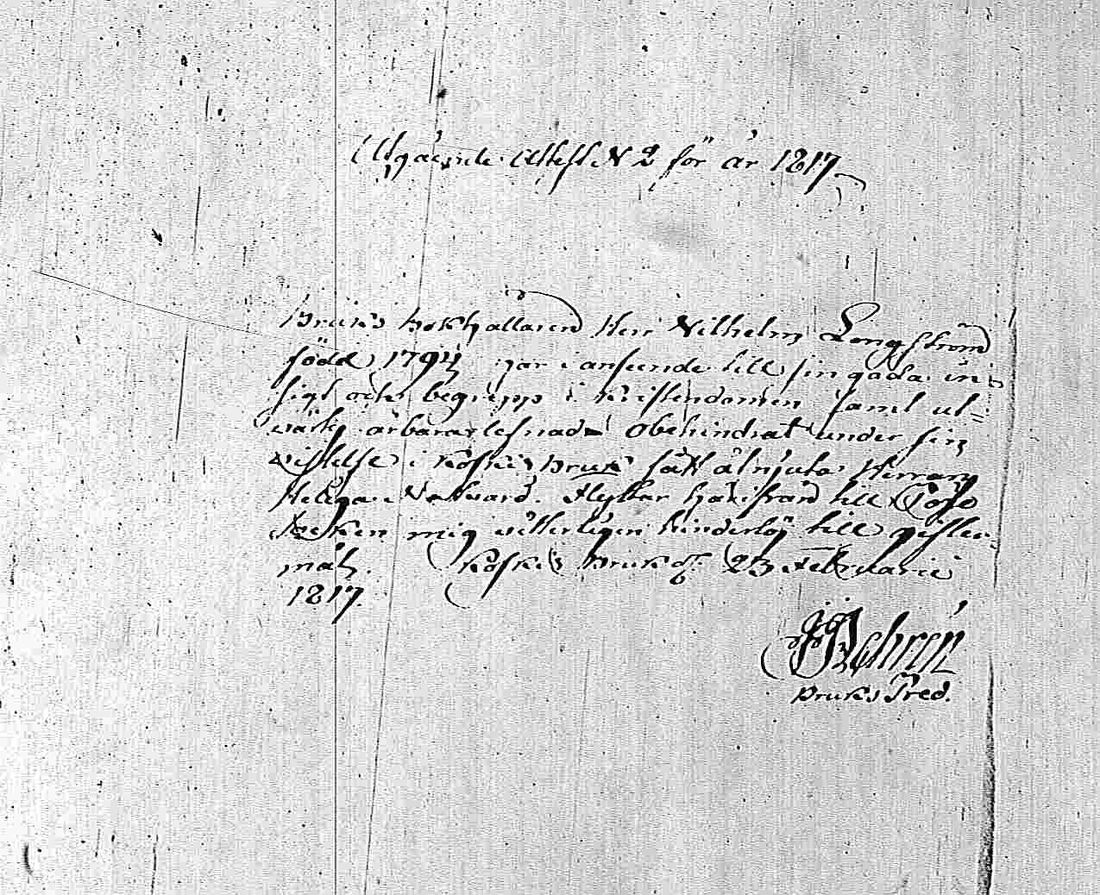 Utgående Attest N 2 för år 1817.
Bruks Bokhållaren Herr Wilhelm Longström
född 1794 har i anseende till sin goda in-
sigt och begrepp i Kristendomen samt ut-
märkt ärbarar lefnad obehindrat under sin
vistelse i Koskis Bruk fått åtnjuta Herrans
Heliga Nattvard. Flyttar härifrån till
mig vitterligen hinderlös till gifter-
mål. Koskis Bruk d: 23 Februarii
1817.
Behrén
Bruks Pred.